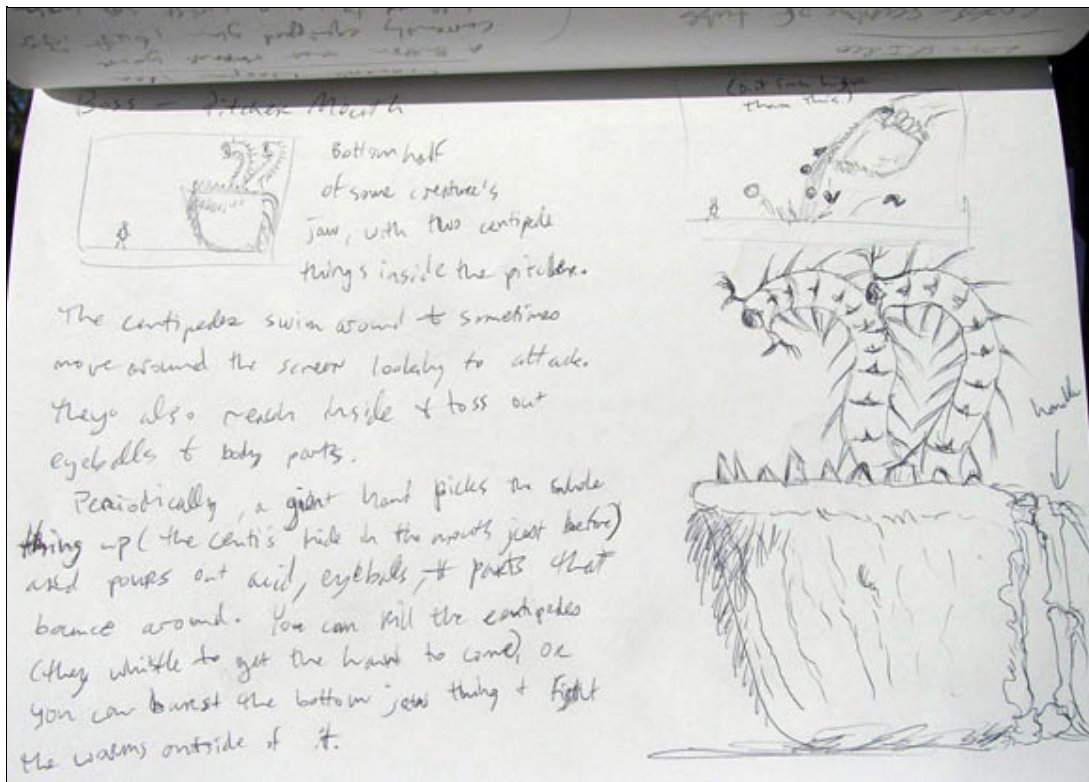 Boss – Pitcher Mouth
Bottom half
of some creature's
jaw, with two centipede
things inside the pitcher.
The centipedes swim around & sometimes
move around the screen looking to attack.
They also reach inside & toss out
eyeballs & body parts.
Periodically, a giant hand picks the whole
thing up (the centi's hide in the mouth just before)
and pours out acid, eyeballs, & parts that
bounce around. You can kill the centipedes
(they whistle to get the hand to come), or
you can burst the bottom jaw thing & fight
the worms outside of it.
than this)
handle